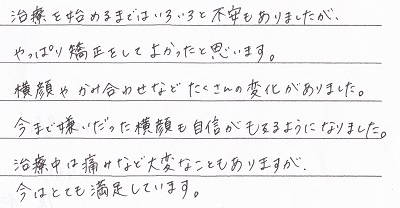 治療を始めるまではいろいろと不安もありましたが、
やっぱり矯正をしてよかったと思います。
横顔やかみ合わせなどたくさんの変化がありました。
今まで嫌いだった横顔も自信がもてるようになりました。
治療中は痛みなど大変なこともありますが、
今はとても満足しています。